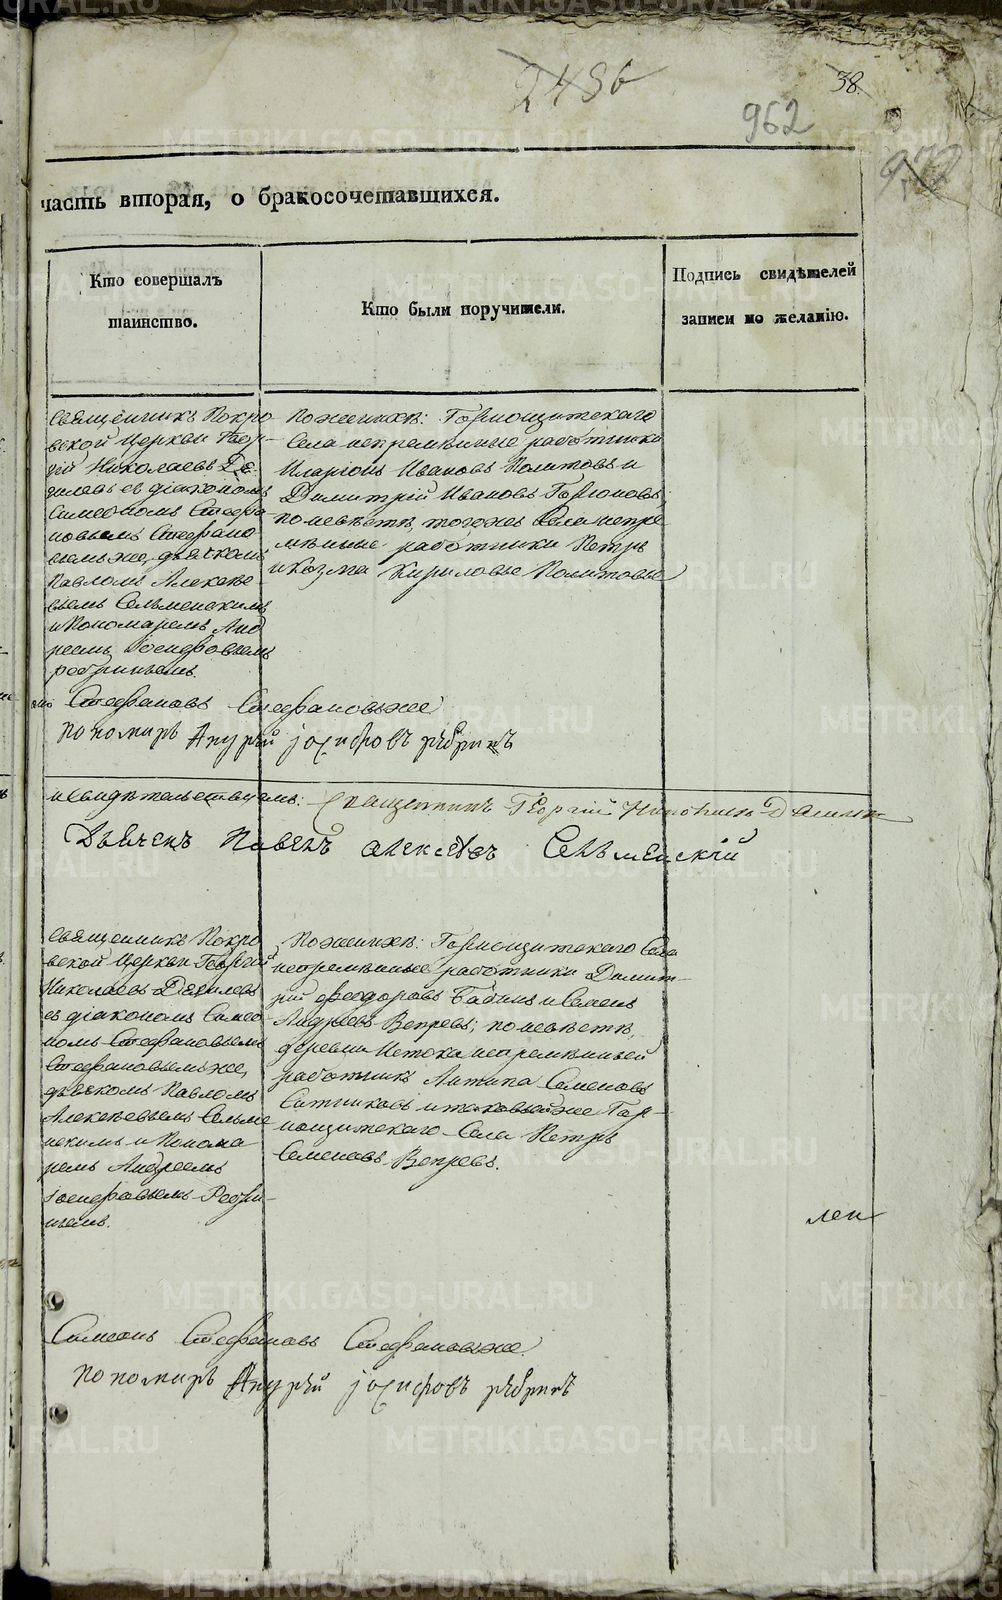 2486
38.
962
часть вторая, о бракосочетавшихся.
Кто совершалъ
таинство.
Кто были поручители.
Подпись свидѣтелей
записи по желанію.
Священникъ Покро
вской Церкви Геор-
гій Николаевъ
съ діакономъ
Симеономъ Стефа
новымъ Стефано
вымъ же, дьячкомъ
Павломъ Алексѣе
вымъ Сельменскимъ
и Пономаремъ Анд
реемъ Іосифовымъ
По женихѣ: Горнощитскаго
Села непремѣнные работники
Иларіонъ Ивановъ Политовъ и
Димитрій Ивановъ
по невѣстѣ, того же Села непре
мѣнные работники Петръ
и Козма Кириловы Политовы
Стефановъ Стефановъ же
Пономарь Андрѣй Іосифовъ
и Свидѣтельствуемъ: Священникъ Георгій
Дьячекъ Павелъ Алексѣевъ Сельменскій
Священникъ Покро
вской Церкви Георгій
Николаевъ
съ діакономъ Симео
номъ Стефановымъ
Стефановымъ же,
дьячкомъ Павломъ
Алексѣевымъ Сельме
нскимъ и Понома
ремъ Андреемъ
Іосифовымъ
По женихѣ: Горнощитскаго Села
непремѣнные работники Димит-
рій Феодоровъ Бабинъ и Семенъ
Андреевъ Вепревъ; по невѣстѣ,
деревни Истока непремѣнный
работникъ Антипа Семеновъ
Ситниковъ и таковый же Гор-
нощитскаго Села Петръ
Семеновъ Вепревъ.
Симеонъ Стефановъ Стефановъ же
Пономарь Андрѣй Іосифовъ
METRIKI.GASO-URAL.RU